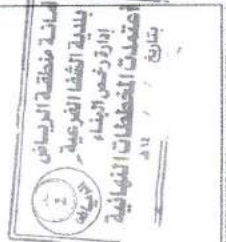 أمانة منطقة الرياض
بلدية الشفا الفرعية
إدارة رخص البناء
اعتمدت المخططات النهائية
بتاريخ
١٤هـ